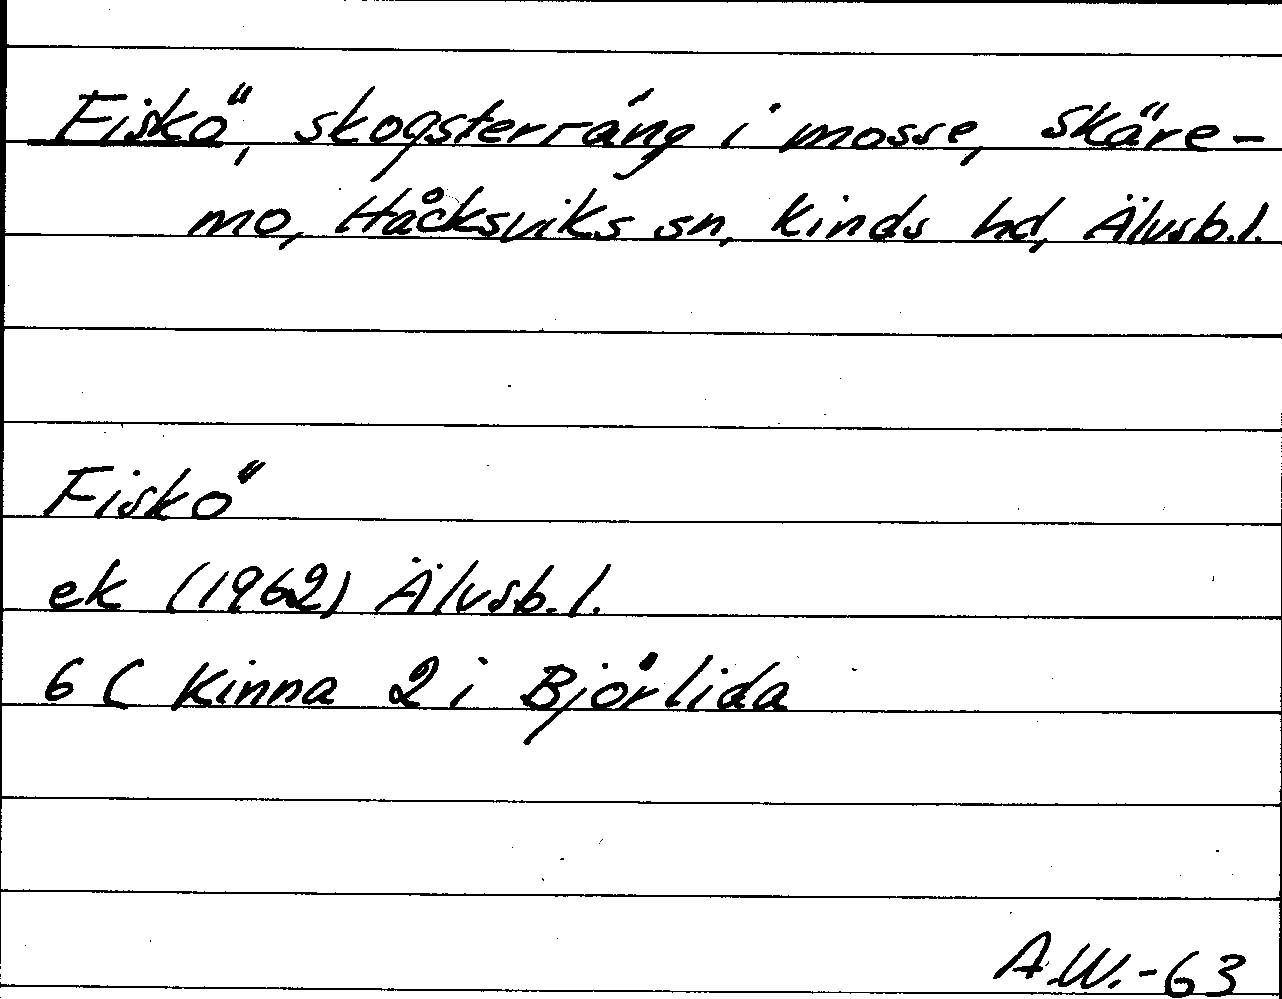 Fiskö, skogsterräng i mosse, Skäre-
mo, Håcksviks sn, Kinds hd, Älvsb.l.
Fiskö
ek (1962) Älvsb.l.
6 C Kinna 2 i Björlida
A.W.-63